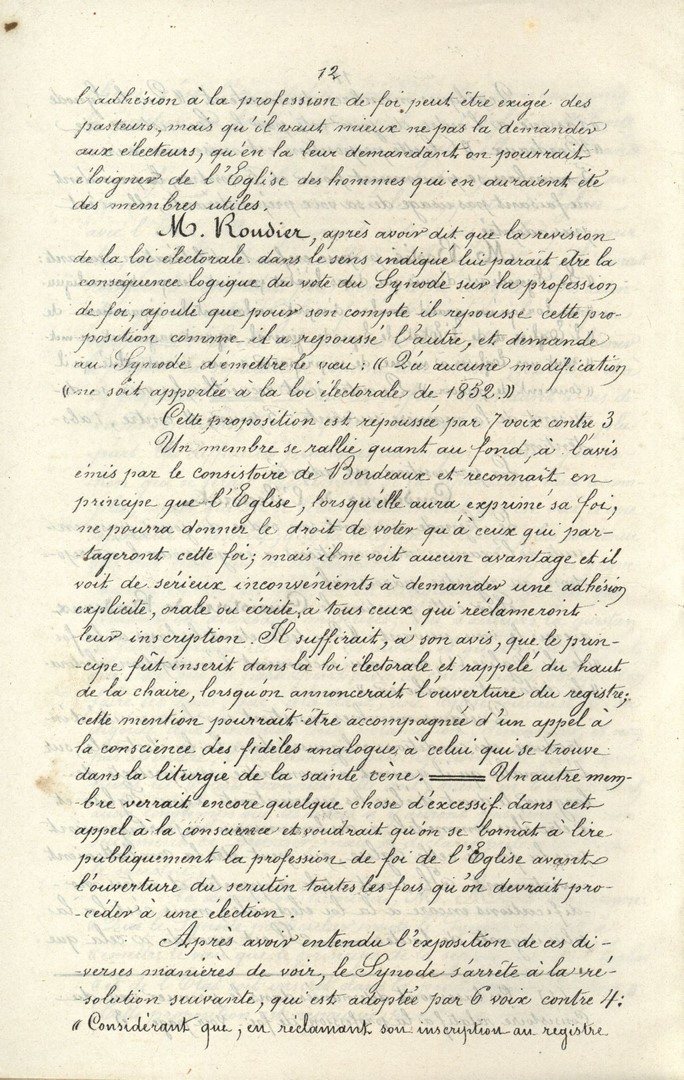 12
l'adhésion à la profession de foi peut être exigée des
pasteurs, mais qu'il vaut mieux ne pas la demander
aux électeurs, qu'en la leur demandant on pourrait
éloigner de l'Eglise des hommes qui en auraient été
des membres utiles.
M. Roudier, après avoir dit que la revision
de la loi électorale dans le sens indiqué lui parait etre la
conséquence logique du vote du Synode sur la profession
de foi, ajoute que pour son compte il repousse cette pro-
position comme il a repoussé l'autre, et demande
au Synode d'émettre le vœu : « Qu'aucune modification
« ne soit apportée à la loi électorale de 1852. »
Cette proposition est repoussée par 7 voix contre 3
Un membre se rallie quant au fond, à l'avis
émis par le consistoire de Bordeaux et reconnait en
principe que l'Eglise, lorsqu'elle aura exprimé sa foi,
ne pourra donner le droit de voter qu'à ceux qui par-
-tageront cette foi; mais il ne voit aucun avantage et il
voit de sérieux inconvénients à demander une adhésion
explicite, orale ou écrite, à tous ceux qui réclameront
leur inscription. Il suffirait, à son avis, que le prin-
-cipe fût inscrit dans la loi électorale et rappelé du haut
de la chaire, lorsqu'on annoncerait l'ouverture du registre;
cette mention pourrait être accompagnée d'un appel à
la conscience des fidèles analogue à celui qui se trouve
dans la liturgie de la sainte cène. ═══ Un autre mem-
-bre verrait encore quelque chose d'excessif dans cet
appel à la conscience et voudrait qu'on se bornât à lire
publiquement la profession de foi de l'Eglise avant
l'ouverture du scrutin toutes les fois qu'on devrait pro-
-céder à une élection.
Après avoir entendu l'exposition de ces di-
-verses manières de voir, le Synode s'arrête à la ré-
-solution suivante, qui est adoptée par 6 voix contre 4:
« Considérant que, en réclamant son inscription au registre